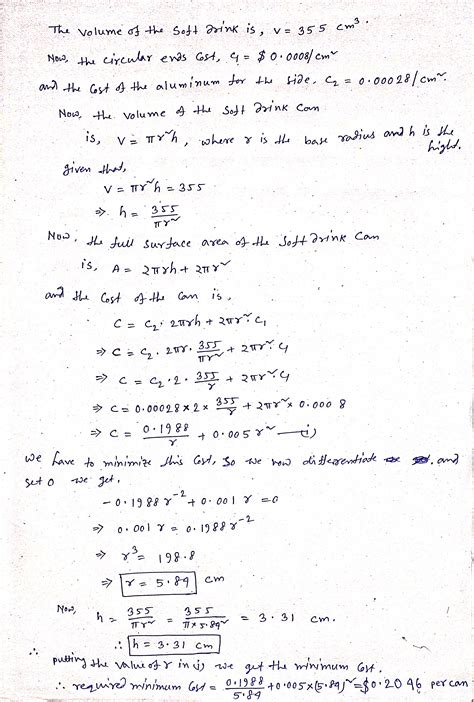 The volume of the soft drink is, V = 355 cm³.
Now, the circular ends Cost, C₁ = $0.0008/cm²
and the Cost of the aluminum for the side, C₂ = 0.00028/cm².
Now, the volume of the soft drink can
is, V = πr²h, where r is the base radius and h is the
hight.
given that,
V = πr²h = 355
⇒ h = 355/πr²
Now, the full surface area of the soft drink can
is, A = 2πrh + 2πr²
and the Cost of the can is,
C = C₂. 2πrh + 2πr². C₁
⇒ C = C₂. 2πr. 355/πr² + 2πr². C₁
⇒ C = C₂. 2. 355/r + 2πr². C₁
⇒ C = 0.00028 × 2 × 355/r + 2πr² × 0.0008
⇒ C = 0.1988/r + 0.005 r² — i)
we have to minimize this Cost, so we now differentiate and
set 0 we get.
- 0.1988 r⁻² + 0.001 r = 0
⇒ 0.001 r = 0.1988 r⁻²
⇒ r³ = 198.8
⇒ r = 5.89 cm
Now, h = 355/πr² = 355/π×5.89² = 3.31 cm.
∴ h = 3.31 cm
putting the value of r in i) we get the minimum Cost.
∴ required minimum Cost = 0.1988/5.89 + 0.005×(5.89)² = $0.2046 per can